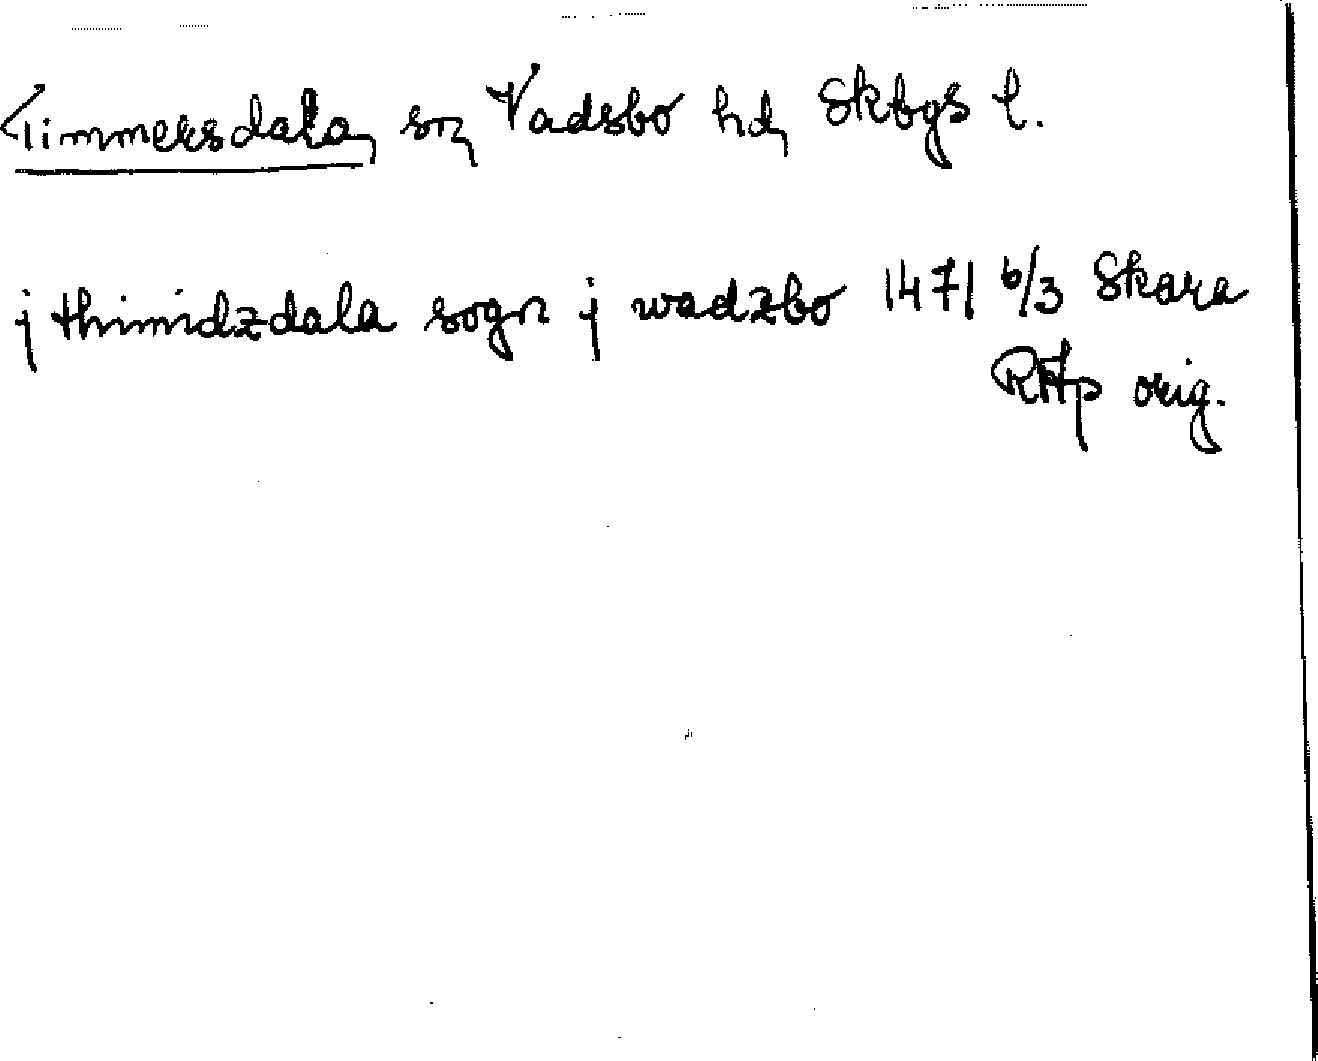 Timmersdala, sn, Vadsbo hd, Skbgs l.
j thimidzdala sogn j wadzbo 1471 6/3 Skara
RAp orig.